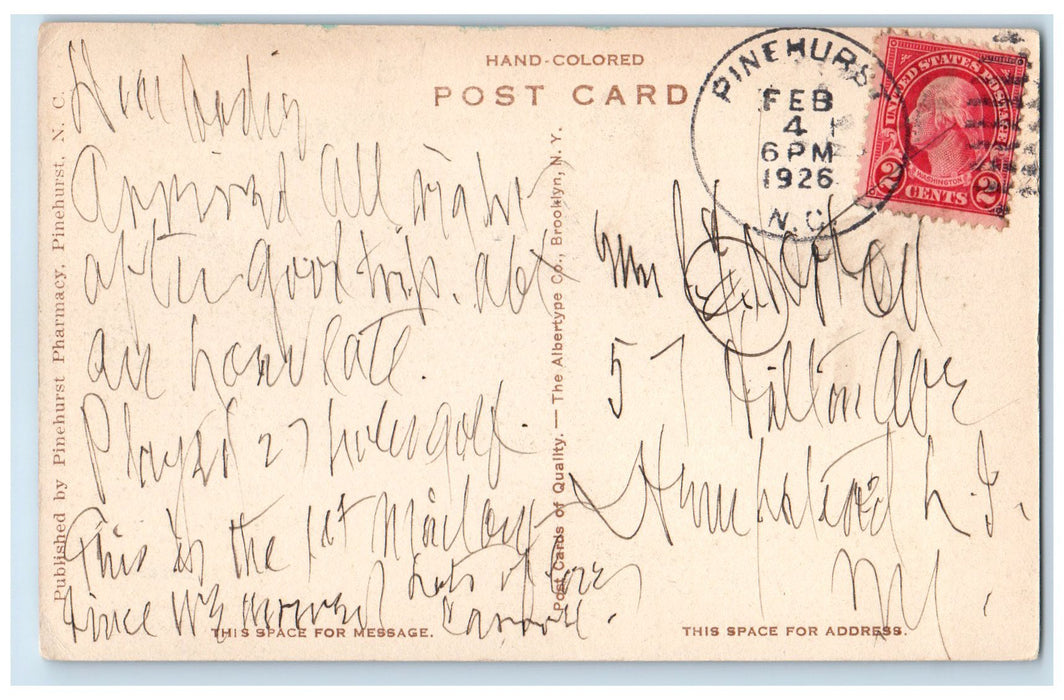 HAND-COLORED
POST CARD
Published by Pinehurst Pharmacy, Pinehurst, N. C.
Post Cards of Quality. — The Albertype Co., Brooklyn, N. Y.
PINEHURST
FEB
4
6 PM
1926
N.C.
UNITED STATES POSTAGE
WASHINGTON
2 CENTS 2
Dear
Arrived all right
after good trip. abt
an hour late.
Played 27 holes golf.
This is the 1st mail out
since we arrived
Lots of love
THIS SPACE FOR MESSAGE.
57 Hilton Ave
Hempstead L.I.
N.Y.
THIS SPACE FOR ADDRESS.